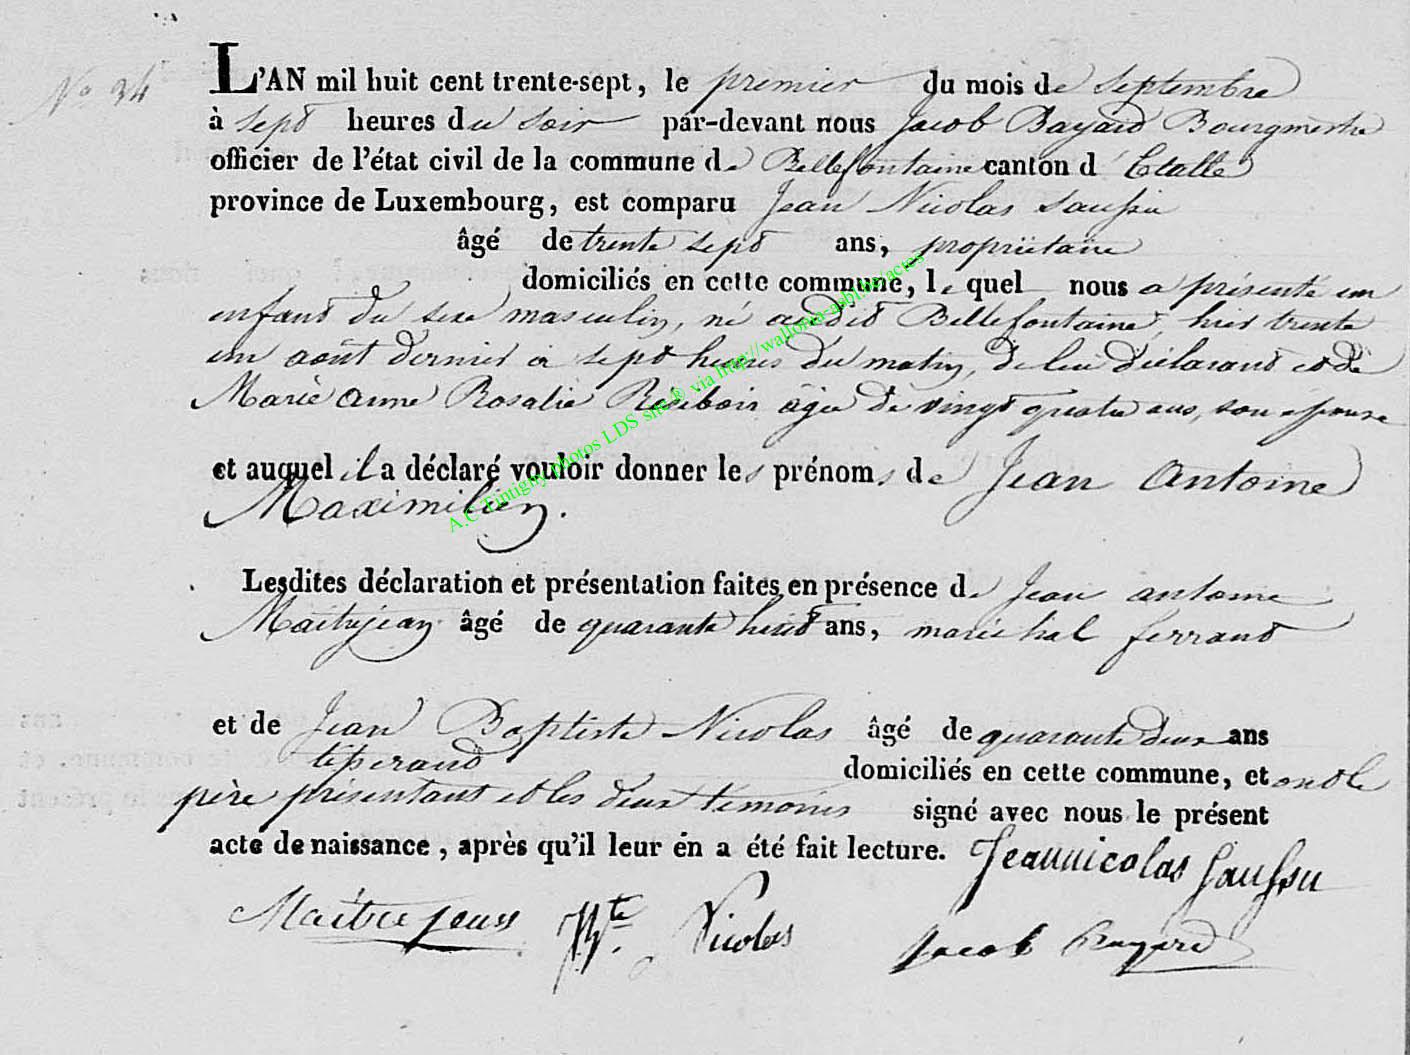 No 34
L'AN mil huit cent trente-sept, le premier du mois de Septembre
à Sept heures du Soir par-devant nous Jacob Bayard Bourgmestre
officier de l'état civil de la commune de Bellefontaine canton d'Etalle
province de Luxembourg, est comparu Jean Nicolas Saussu
âgé de trente Sept ans, propriétaire
domiciliés en cette commune, le quel nous a présenté un
enfant du sexe masculin, né audit Bellefontaine, hier trente
un août dernier à sept heures du matin, de lui déclarant et de
Marie Anne Rosalie agée de vingt quatre ans, son epouse
et auquel il a déclaré vouloir donner les prénoms de Jean Antoine
Maximilien.
Lesdites déclaration et présentation faites en présence de Jean antoine
Maitrejean âgé de quarante huit ans, maréchal ferrant
et de Jean Baptiste Nicolas âgé de quarante deux ans
tisserand domiciliés en cette commune, et ont le
père présentant et les deux témoins signé avec nous le présent
acte de naissance, après qu'il leur en a été fait lecture. Jeannicolas Saussu
Maitrejean JBte. Nicolas Jacob Bayard
A.C Tintigny photos LDS site® via http://wallonia-asbl.be/actes